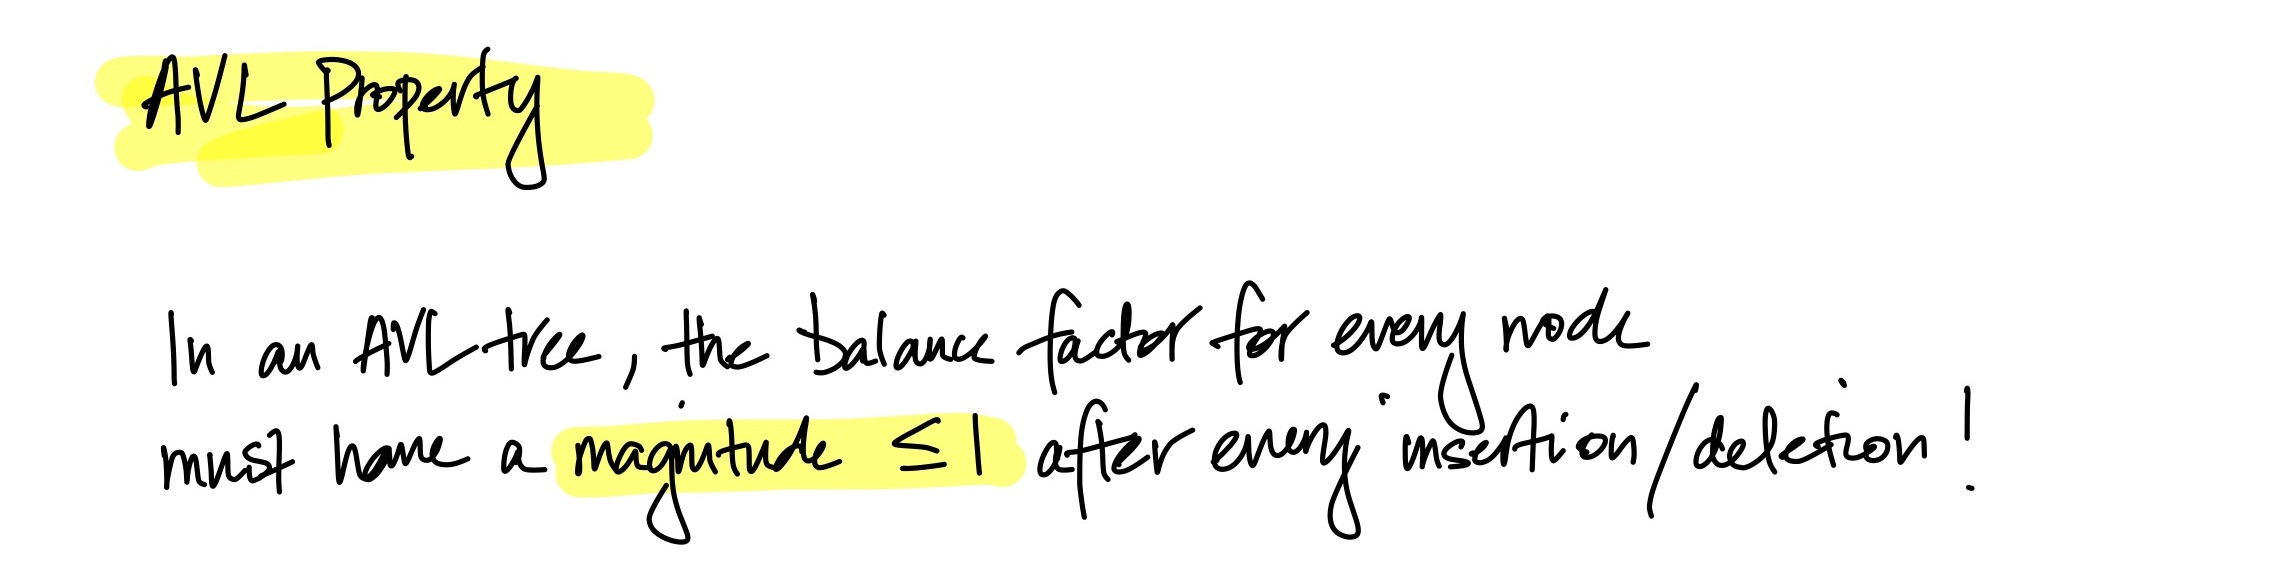 AVL Property
In an AVL tree, the balance factor for every node
must have a magnitude ≤ 1 after every insertion/deletion!